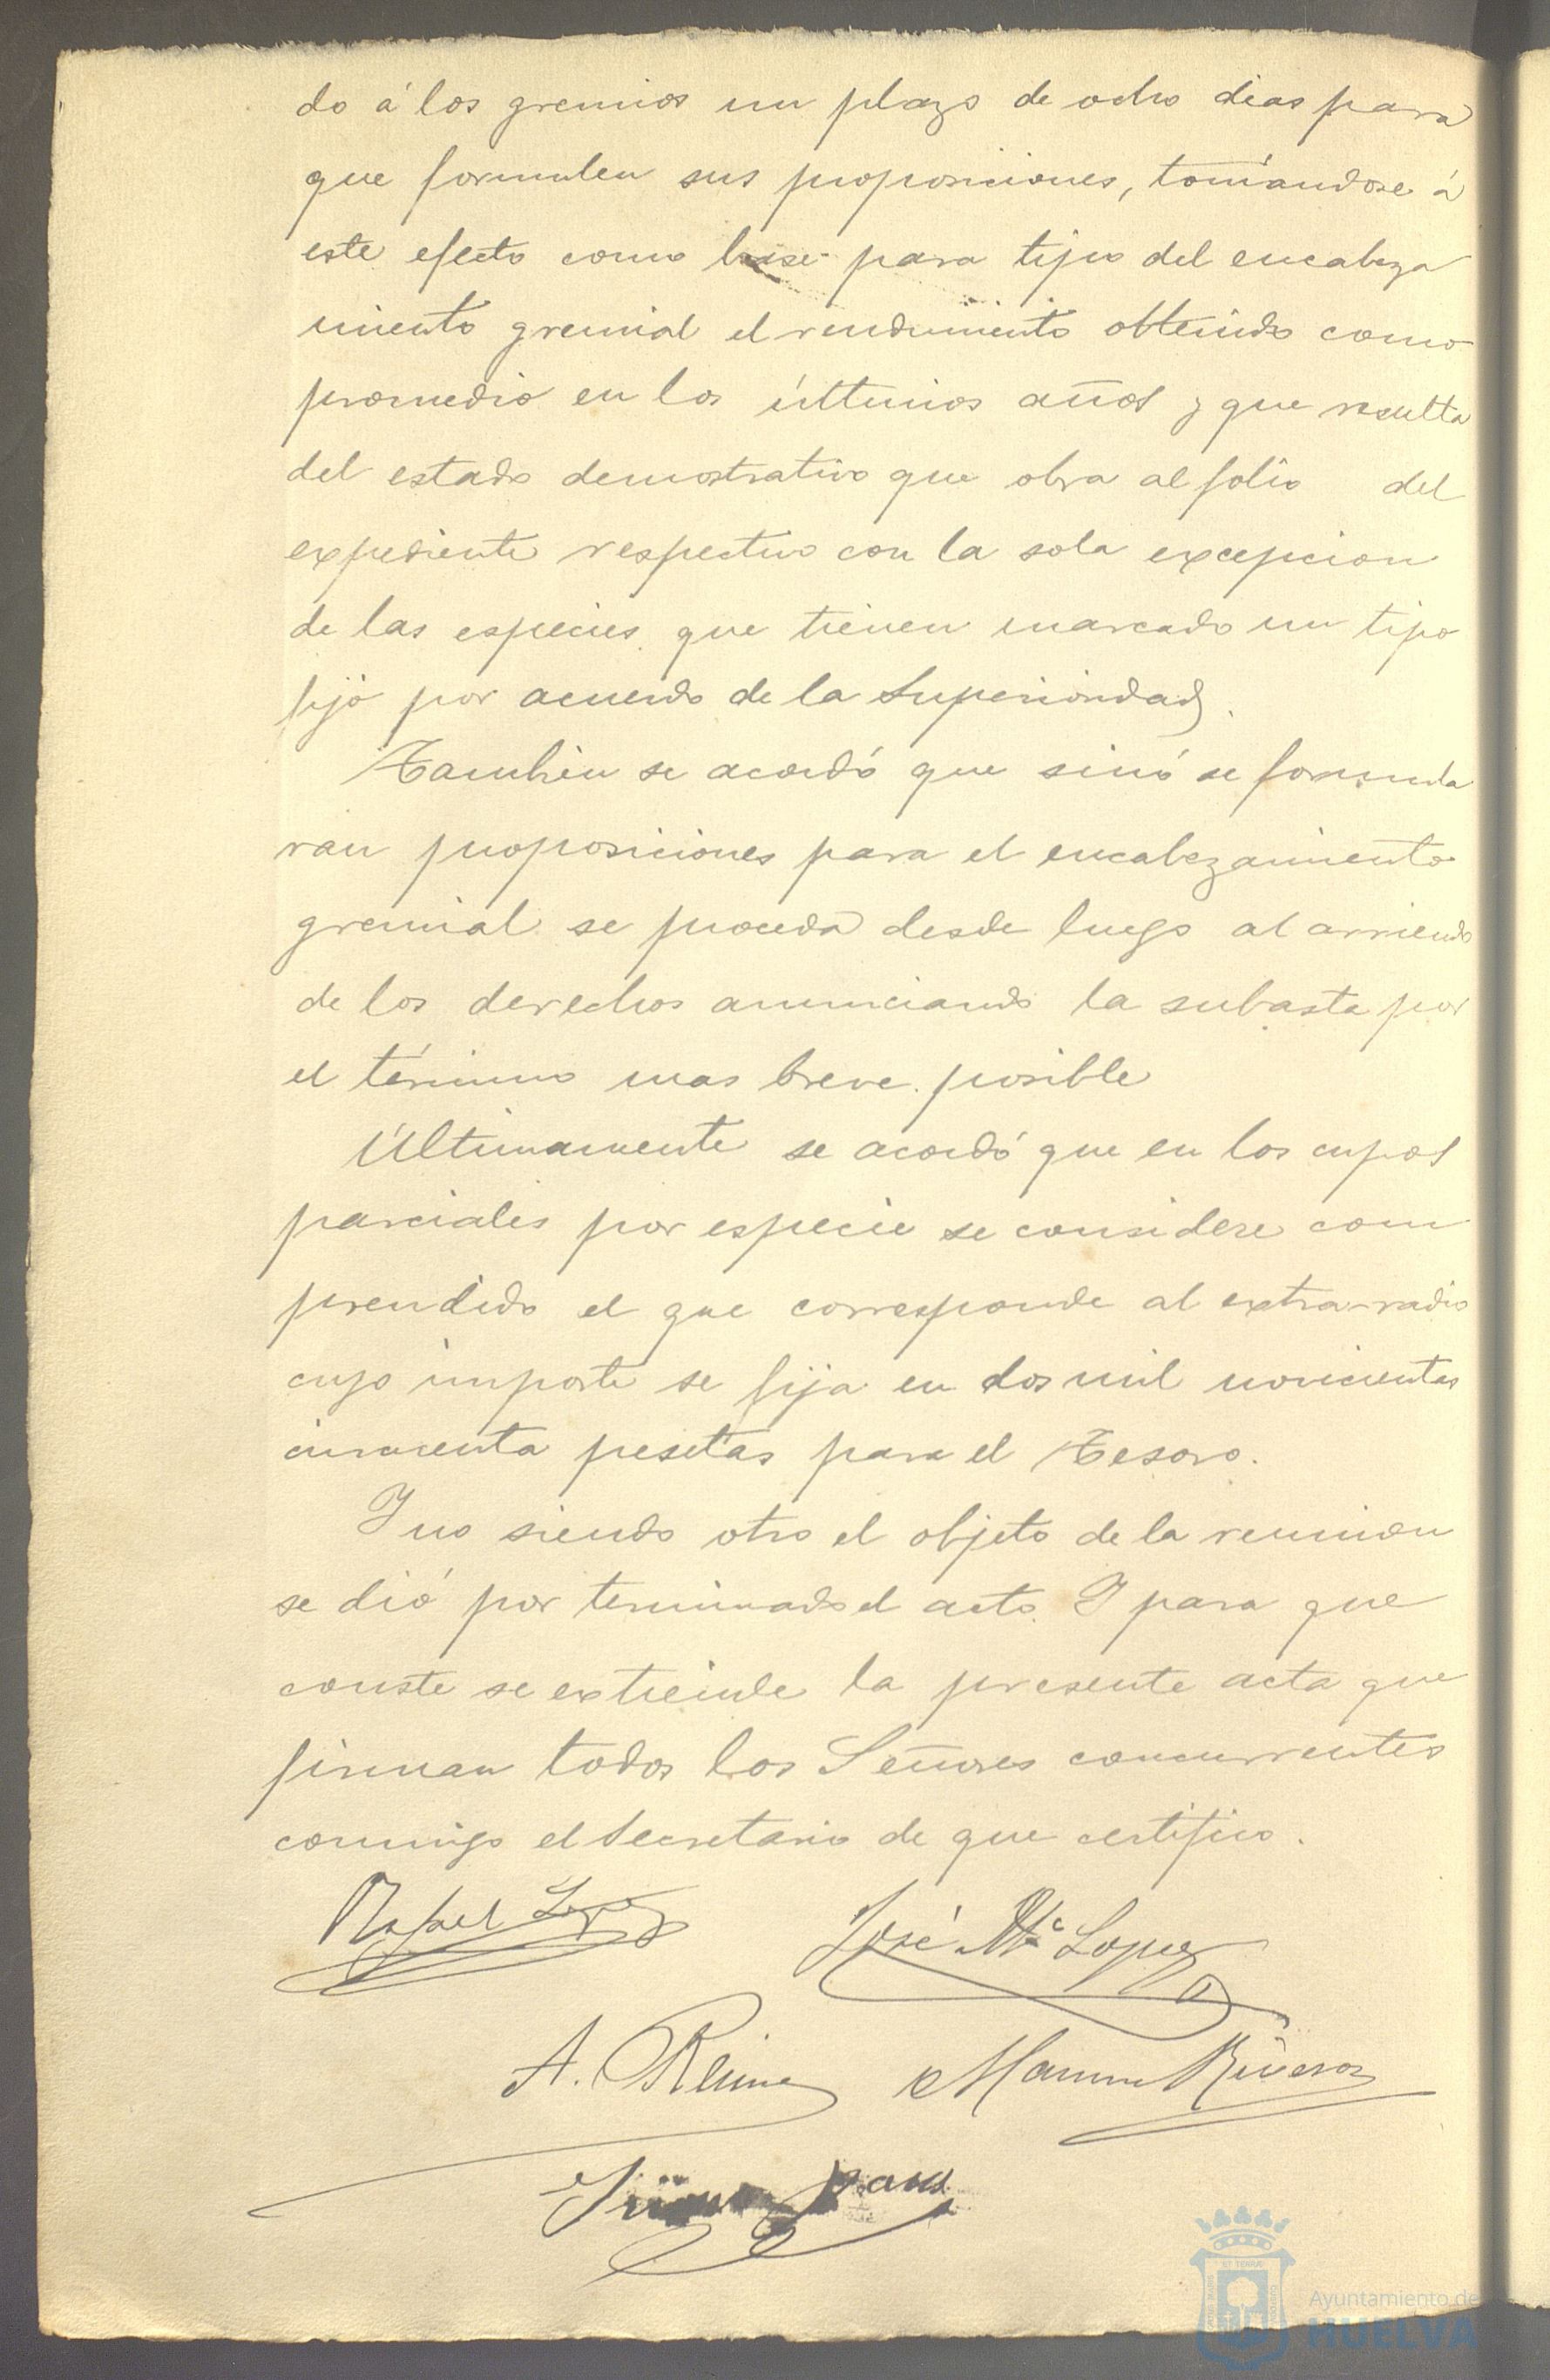 do á los gremios un plazo de ocho dias para
que formulen sus proposiciones, tomándose á
este efecto como base para tipo del encabeza
miento gremial el rendimiento obtenido como
promedio en los últimos años y que resulta
del estado demostrativo que obra al folio del
expediente respectivo con la sola excepcion
de las especies que tienen marcado un tipo
fijo por acuerdo de la Superioridad.
Tambien se acordó que sinó se formula
ran proposiciones para el encabezamiento
gremial se proceda desde luego al arriendo
de los derechos anunciando la subasta por
el término mas breve posible
Últimamente se acordó que en los cupos
parciales por especie se considere com
prendido el que corresponde al extra-radio
cuyo importe se fija en dos mil novecientas
cincuenta pesetas para el Tesoro.
Y no siendo otro el objeto de la reunion
se dió por terminado el acto. Y para que
conste se extiende la presente acta que
firman todos los Señores concurrentes
conmigo el Secretario de que certifico.
Rafael Lopez José Mª Lopez
A. Manuel
Ayuntamiento de
HUELVA